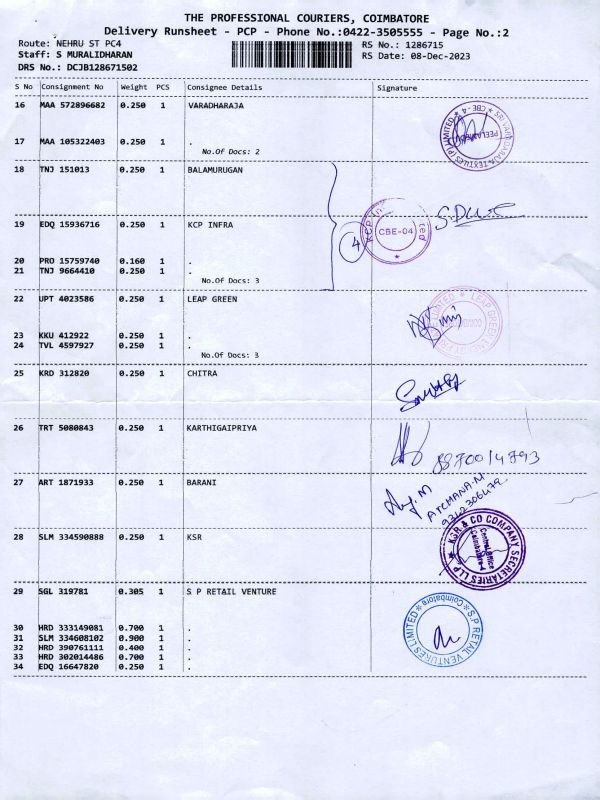 THE PROFESSIONAL COURIERS, COIMBATORE
Delivery Runsheet - PCP - Phone No.:0422-3505555 - Page No.:2
Route: NEHRU ST PC4 RS No.: 1286715
Staff: S MURALIDHARAN RS Date: 08-Dec-2023
DRS No.: DCJB128671502
S No Consignment No Weight PCS Consignee Details Signature
16 MAA 572896682 0.250 1 VARADHARAJA
SRI VARADARAJA TEXTILES (P) LIMITED ★ CBE-4 ★
PEELAMEDU
17 MAA 105322403 0.250 1 .
No.Of Docs: 2
18 TNJ 151013 0.250 1 BALAMURUGAN
19 EDQ 15936716 0.250 1 KCP INFRA
4
KCP In ed
CBE-04
20 PRO 15759740 0.160 1 .
21 TNJ 9664410 0.250 1 .
No.Of Docs: 3
22 UPT 4023586 0.250 1 LEAP GREEN
LEAP GREEN
23 KKU 412922 0.250 1 .
24 TVL 4597927 0.250 1 .
No.Of Docs: 3
25 KRD 312820 0.250 1 CHITRA
26 TRT 5080843 0.250 1 KARTHIGAIPRIYA
27 ART 1871933 0.250 1 BARANI
ARCHANA.M
28 SLM 334590888 0.250 1 KSR
KSR & CO COMPANY SECRETARIES LLP ★
Coimbatore-4
29 SGL 319781 0.305 1 S P RETAIL VENTURE
S.P. RETAIL VENTURES LIMITED ★ Coimbatore ★
30 HRD 333149081 0.700 1 .
31 SLM 334608102 0.900 1 .
32 HRD 390761111 0.400 1 .
33 HRD 302014486 0.700 1 .
34 EDQ 16647820 0.250 1 .